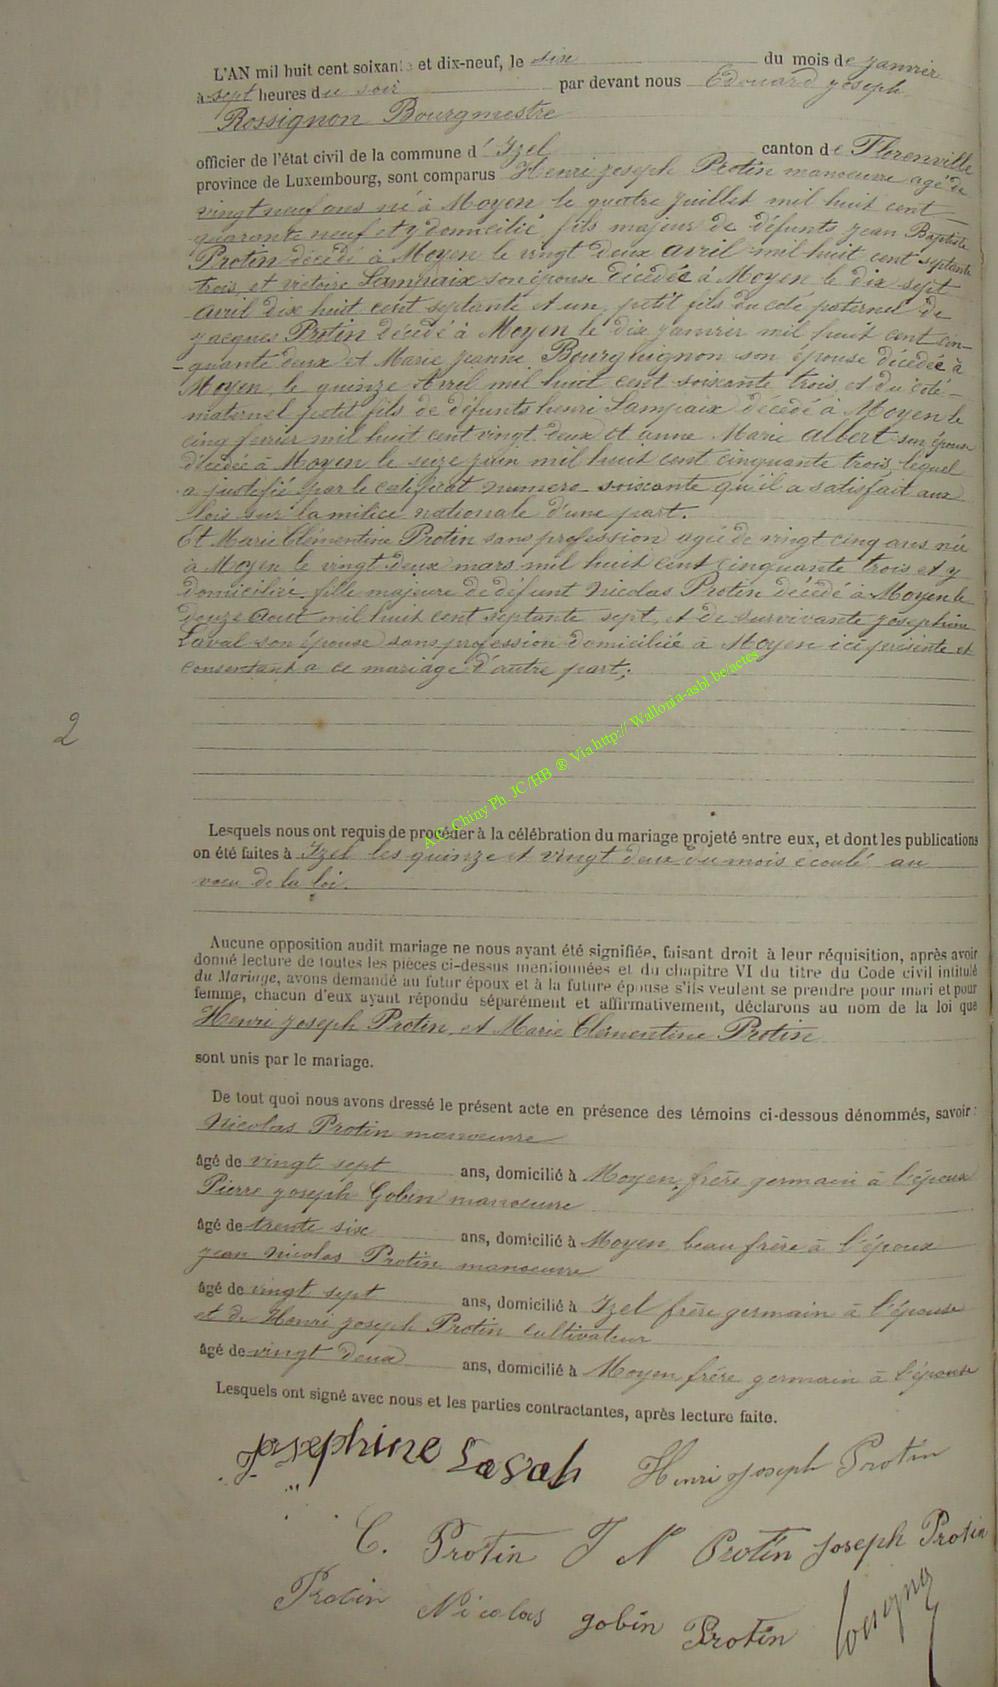 L'AN mil huit cent soixante et dix-neuf, le six du mois de janvier
à sept heures du soir par devant nous Edouard joseph
Rossignon Bourgmestre
officier de l'état civil de la commune d' Izel canton de Florenville
province de Luxembourg, sont comparus Henri joseph Protin manoeuvre agé de
vingt neuf ans né à Moyen le quatre juillet mil huit cent
quarante neuf et y domicilié, fils majeur de défunts jean Baptiste
Protin décédé à Moyen le vingt deux avril mil huit cent septante
trois, et victoire Lampaix son épouse décédée à Moyen le dix sept
avril dix huit cent septante et un, petit fils du coté paternel de
jacques Protin décédé à Moyen le dix janvier mil huit cent cin-
-quante deux et Marie jeanne Bourghuignon son épouse décédée à
Moyen le quinze Avril mil huit cent soixante trois, et du coté
maternel petit fils de défunts henri Lampaix décédé à Moyen le
cinq fevrier mil huit cent vingt deux et anne Marie albert son épouse
décédée à Moyen le seize juin mil huit cent cinquante trois, lequel
a justifié par le certificat numero soixante qu'il a satisfait aux
lois sur la milice nationale d'une part.
Et Marie Clémentine Protin sans profession agée de vingt cinq ans née
à Moyen le vingt deux mars mil huit cent cinquante trois et y
domiciliée fille majeure de défunt Nicolas Protin décédé à Moyen le
douze aout mil huit cent septante sept, et de survivante josephine
Laval son épouse sans profession domiciliée à Moyen ici présente et
consentant a ce mariage d'autre part;
2
A.C. Chiny Ph. JC/HB ® Via http:// Wallonia-asbl.be/actes
Lesquels nous ont requis de procéder à la célébration du mariage projeté entre eux, et dont les publications
on été faites à Izel les quinze et vingt deux du mois écoulé au
voeu de la loi.
Aucune opposition audit mariage ne nous ayant été signifiée, faisant droit à leur réquisition, après avoir
donné lecture de toutes les pièces ci-dessus mentionnées et du chapitre VI du titre du Code civil intitulé
du Mariage, avons demandé au futur époux et à la future épouse s'ils veulent se prendre pour mari et pour
femme, chacun d'eux ayant répondu séparément et affirmativement, déclarons au nom de la loi que
Henri joseph Protin et Marie Clémentine Protin
sont unis par le mariage.
De tout quoi nous avons dressé le présent acte en présence des témoins ci-dessous dénommés, savoir:
Nicolas Protin manoeuvre
âgé de vingt sept ans, domicilié à Moyen, frère germain à l'époux
Pierre joseph Gobin manoeuvre
âgé de trente six ans, domicilié à Moyen beau frère à l'époux
jean nicolas Protin manoeuvre
âgé de vingt sept ans, domicilié à Izel frère germain à l'épouse
et de Henri joseph Protin cultivateur
âgé de vingt deux ans, domicilié à Moyen frère germain à l'épouse
Lesquels ont signé avec nous et les parties contractantes, après lecture faite.
Josephine Laval Henri Joseph Protin
C. Protin J N Protin Joseph Protin
Protin Nicolas gobin Protin